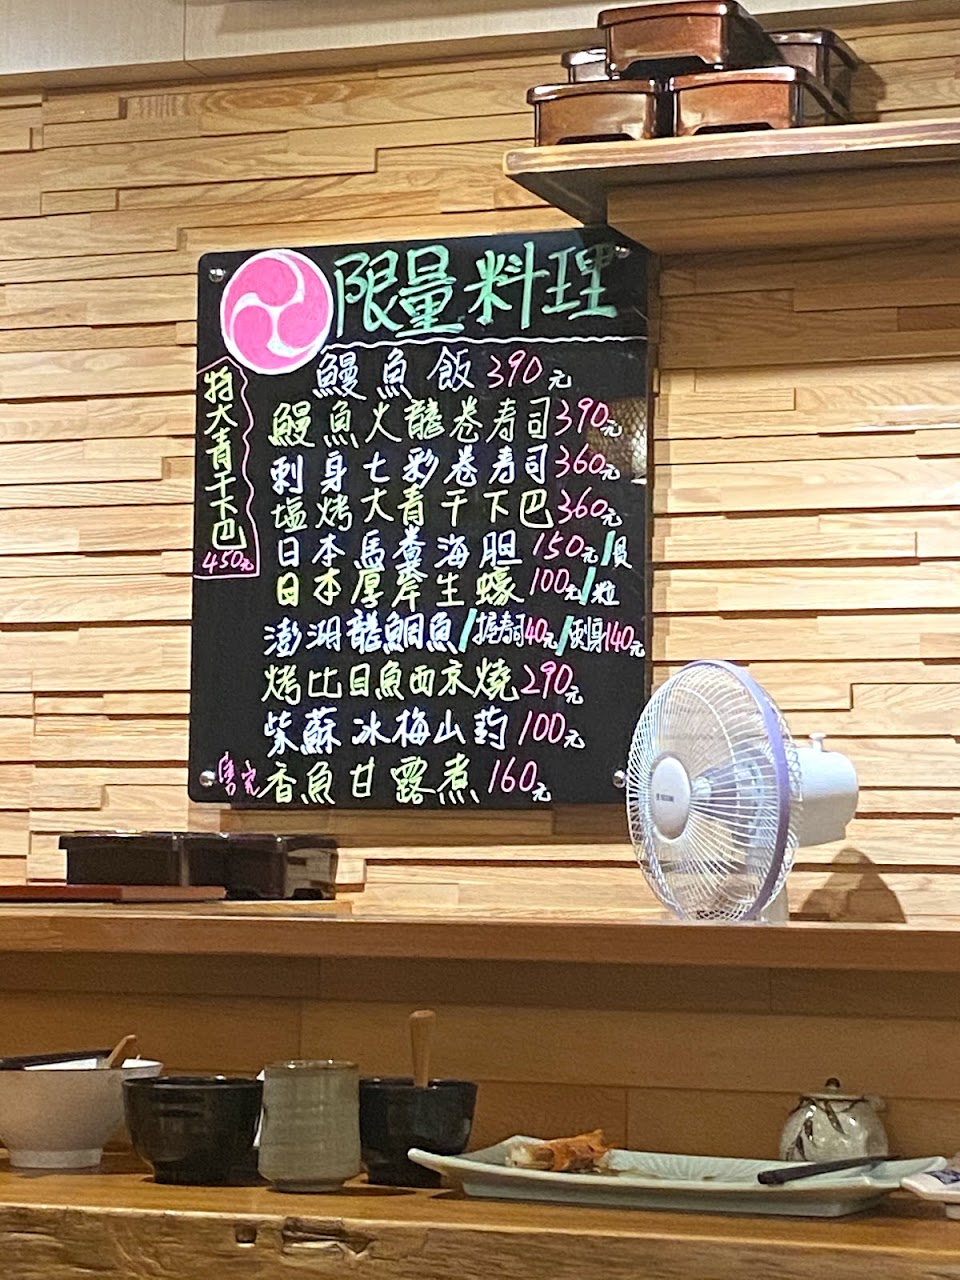 限量料理
特大青干下巴
450元
鰻魚飯390元
鰻魚火龍卷寿司390元
刺身七彩卷寿司360元
塩烤大青干下巴360元
日本馬糞海胆150元/貝
日本厚岸生蠔100元/粒
澎湖龍鯛魚/握寿司40元/刺身140元
烤比目魚西京燒290元
紫蘇冰梅山葯100元
售完 香魚甘露煮160元